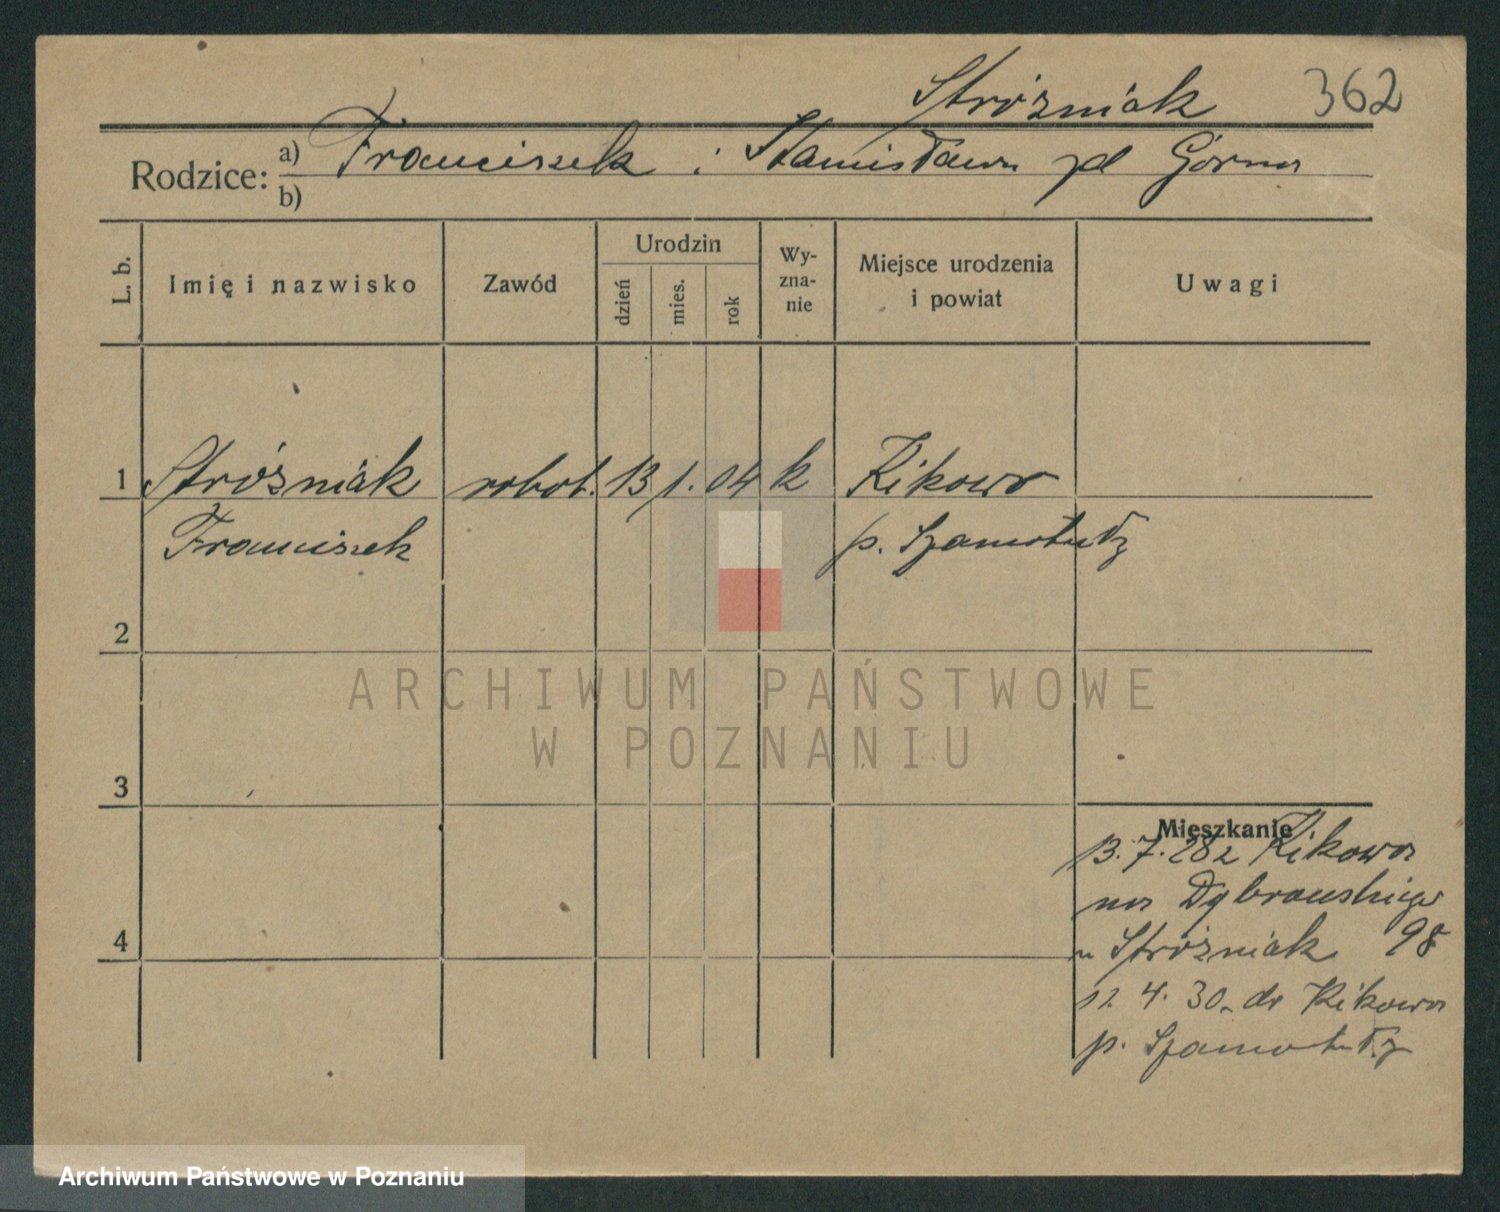 Stróżniak 362
Rodzice: a) Franciszek i Stanisława zd Górna
b)
L. b. Imię i nazwisko Zawód Urodzin dzień mies. rok Wyznanie Miejsce urodzenia i powiat Uwagi
1 Stróżniak robot. 13 1. 04 k Kikowo
Franciszek p. Szamotuły
2
ARCHIWUM PAŃSTWOWE
W POZNANIU
3
Mieszkanie
13.7.28 z Kikowa
na Dąbrowskiego
u Stróżniak 98
12. 4. 30. do Kikowa
p. Szamotuły
4
Archiwum Państwowe w Poznaniu